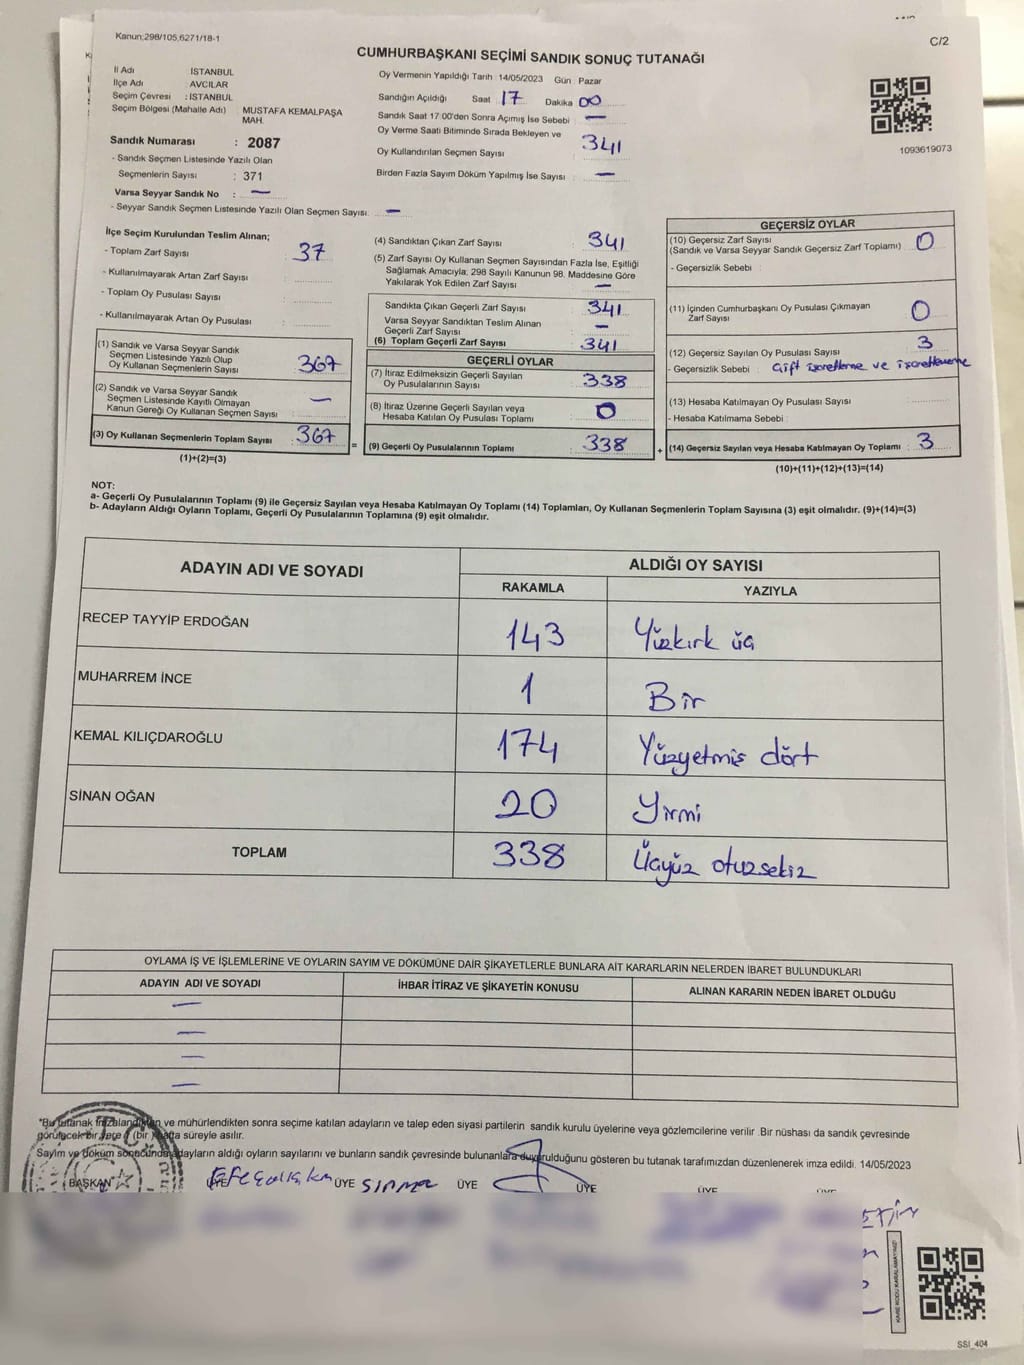 Kanun:298/105,6271/18-1
C/2
CUMHURBAŞKANI SEÇİMİ SANDIK SONUÇ TUTANAĞI
İl Adı İSTANBUL
İlçe Adı : AVCILAR
Seçim Çevresi : İSTANBUL
Seçim Bölgesi (Mahalle Adı) MUSTAFA KEMALPAŞA MAH.
Sandık Numarası : 2087
- Sandık Seçmen Listesinde Yazılı Olan
Seçmenlerin Sayısı : 371
Varsa Seyyar Sandık No : —
- Seyyar Sandık Seçmen Listesinde Yazılı Olan Seçmen Sayısı: —
Oy Vermenin Yapıldığı Tarih :14/05/2023 Gün : Pazar
Sandığın Açıldığı Saat 17 Dakika 00
Sandık Saat 17:00'den Sonra Açımış İse Sebebi : —
Oy Verme Saati Bitiminde Sırada Bekleyen ve
Oy Kullandırılan Seçmen Sayısı : 341
Birden Fazla Sayım Döküm Yapılmış İse Sayısı : —
1093619073
İlçe Seçim Kurulundan Teslim Alınan;
- Toplam Zarf Sayısı : 37
- Kullanılmayarak Artan Zarf Sayısı :
- Toplam Oy Pusulası Sayısı :
- Kullanılmayarak Artan Oy Pusulası :
(1) Sandık ve Varsa Seyyar Sandık
Seçmen Listesinde Yazılı Olup
Oy Kullanan Seçmenlerin Sayısı : 367
(2) Sandık ve Varsa Seyyar Sandık
Seçmen Listesinde Kayıtlı Olmayan
Kanun Gereği Oy Kullanan Seçmen Sayısı : —
(3) Oy Kullanan Seçmenlerin Toplam Sayısı : 367
(1)+(2)=(3)
(4) Sandıktan Çıkan Zarf Sayısı : 341
(5) Zarf Sayısı Oy Kullanan Seçmen Sayısından Fazla İse, Eşitliği
Sağlamak Amacıyla, 298 Sayılı Kanunun 98. Maddesine Göre
Yakılarak Yok Edilen Zarf Sayısı : —
Sandıkta Çıkan Geçerli Zarf Sayısı : 341
Varsa Seyyar Sandıktan Teslim Alınan
Geçerli Zarf Sayısı : —
(6) Toplam Geçerli Zarf Sayısı : 341
GEÇERLİ OYLAR
(7) İtiraz Edilmeksizin Geçerli Sayılan
Oy Pusulalarının Sayısı : 338
(8) İtiraz Üzerine Geçerli Sayılan veya
Hesaba Katılan Oy Pusulası Toplamı : 0
= (9) Geçerli Oy Pusulalarının Toplamı : 338 +
GEÇERSİZ OYLAR
(10) Geçersiz Zarf Sayısı
(Sandık ve Varsa Seyyar Sandık Geçersiz Zarf Toplamı) : 0
- Geçersizlik Sebebi :
(11) İçinden Cumhurbaşkanı Oy Pusulası Çıkmayan
Zarf Sayısı : 0
(12) Geçersiz Sayılan Oy Pusulası Sayısı : 3
Geçersizlik Sebebi : Çift işaretleme ve işaretlememe
(13) Hesaba Katılmayan Oy Pusulası Sayısı :
- Hesaba Katılmama Sebebi :
(14) Geçersiz Sayılan veya Hesaba Katılmayan Oy Toplamı : 3
(10)+(11)+(12)+(13)=(14)
NOT:
a- Geçerli Oy Pusulalarının Toplamı (9) ile Geçersiz Sayılan veya Hesaba Katılmayan Oy Toplamı (14) Toplamları, Oy Kullanan Seçmenlerin Toplam Sayısına (3) eşit olmalıdır. (9)+(14)=(3)
b- Adayların Aldığı Oyların Toplamı, Geçerli Oy Pusulalarının Toplamına (9) eşit olmalıdır.
ADAYIN ADI VE SOYADI ALDIĞI OY SAYISI
RAKAMLA YAZIYLA
RECEP TAYYİP ERDOĞAN 143 Yüzkırk üç
MUHARREM İNCE 1 Bir
KEMAL KILIÇDAROĞLU 174 Yüzyetmiş dört
SİNAN OĞAN 20 Yirmi
TOPLAM 338 Üçyüz otuzsekiz
OYLAMA İŞ VE İŞLEMLERİNE VE OYLARIN SAYIM VE DÖKÜMÜNE DAİR ŞİKAYETLERLE BUNLARA AİT KARARLARIN NELERDEN İBARET BULUNDUKLARI
ADAYIN ADI VE SOYADI İHBAR İTİRAZ VE ŞİKAYETİN KONUSU ALINAN KARARIN NEDEN İBARET OLDUĞU
—
—
—
—
*Bu tutanak imzalandıktan ve mühürlendikten sonra seçime katılan adayların ve talep eden siyasi partilerin sandık kurulu üyelerine veya gözlemcilerine verilir .Bir nüshası da sandık çevresinde
görülecek bir yere 1 (bir ) hafta süreyle asılır.
Sayım ve döküm sonucunda adayların aldığı oyların sayılarını ve bunların sandık çevresinde bulunanlara duyurulduğunu gösteren bu tutanak tarafımızdan düzenlenerek imza edildi. 14/05/2023
BAŞKAN ÜYE ÜYE ÜYE ÜYE ÜYE ÜYE
T.C.
SSI_404